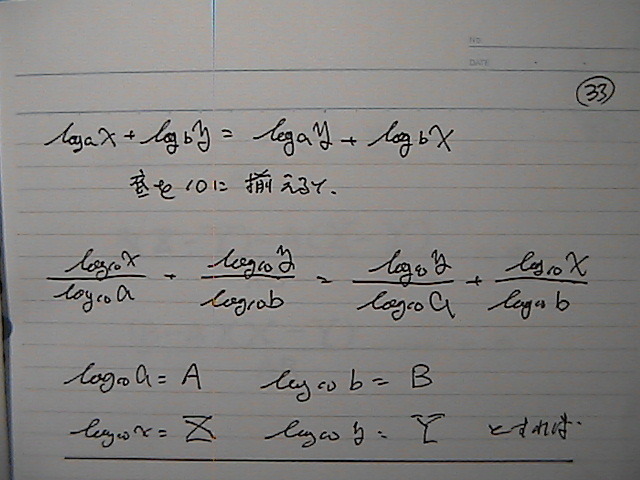 NO.
DATE
33
log_a x + log_b y = log_a y + log_b x
底を10に揃えると.
log₁₀x/log₁₀a + log₁₀y/log₁₀b = log₁₀y/log₁₀a + log₁₀x/log₁₀b
log₁₀a = A log₁₀b = B
log₁₀x = X log₁₀y = Y とすれば.